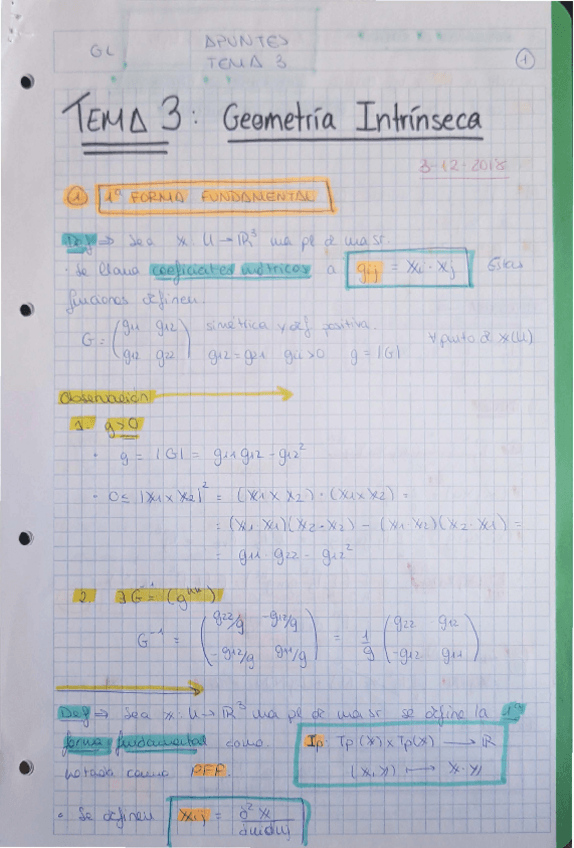 GL
APUNTES
TEMA 3
1
TEMA 3: Geometría Intrínseca
3-12-2018
1 1ª FORMA FUNDAMENTAL
Def ⇒ Sea x: U → ℝ³ una pl de una sr.
· Se llama coeficientes métricos a gij = xi · xj Estas
funciones definen.
G = (g11 g12 / g12 g22) simétrica y def positiva. ∀ punto de x(U)
g12 = g21 gii > 0 g = |G|
Observación
1. g > 0
· g = |G| = g11 g12 - g12²
· 0 ≤ |x1 × x2|² = (x1 × x2) · (x1 × x2) =
= (x1 · x1)(x2 · x2) - (x1 · x2)(x2 · x1) =
= g11 · g22 - g12²
2. ∃ G⁻¹ = (g^km)
G⁻¹ = (g22/g -g12/g / -g12/g g11/g) = 1/g (g22 g12 / -g12 g11)
Def ⇒ Sea x: U → ℝ³ una pl de una sr. se define la 1ª
forma fundamental como Ip: Tp(X) × Tp(X) → ℝ
notada como PFF. (X, Y) ↦ X · Y
· Se definen xij = ∂²x / ∂ui∂uj